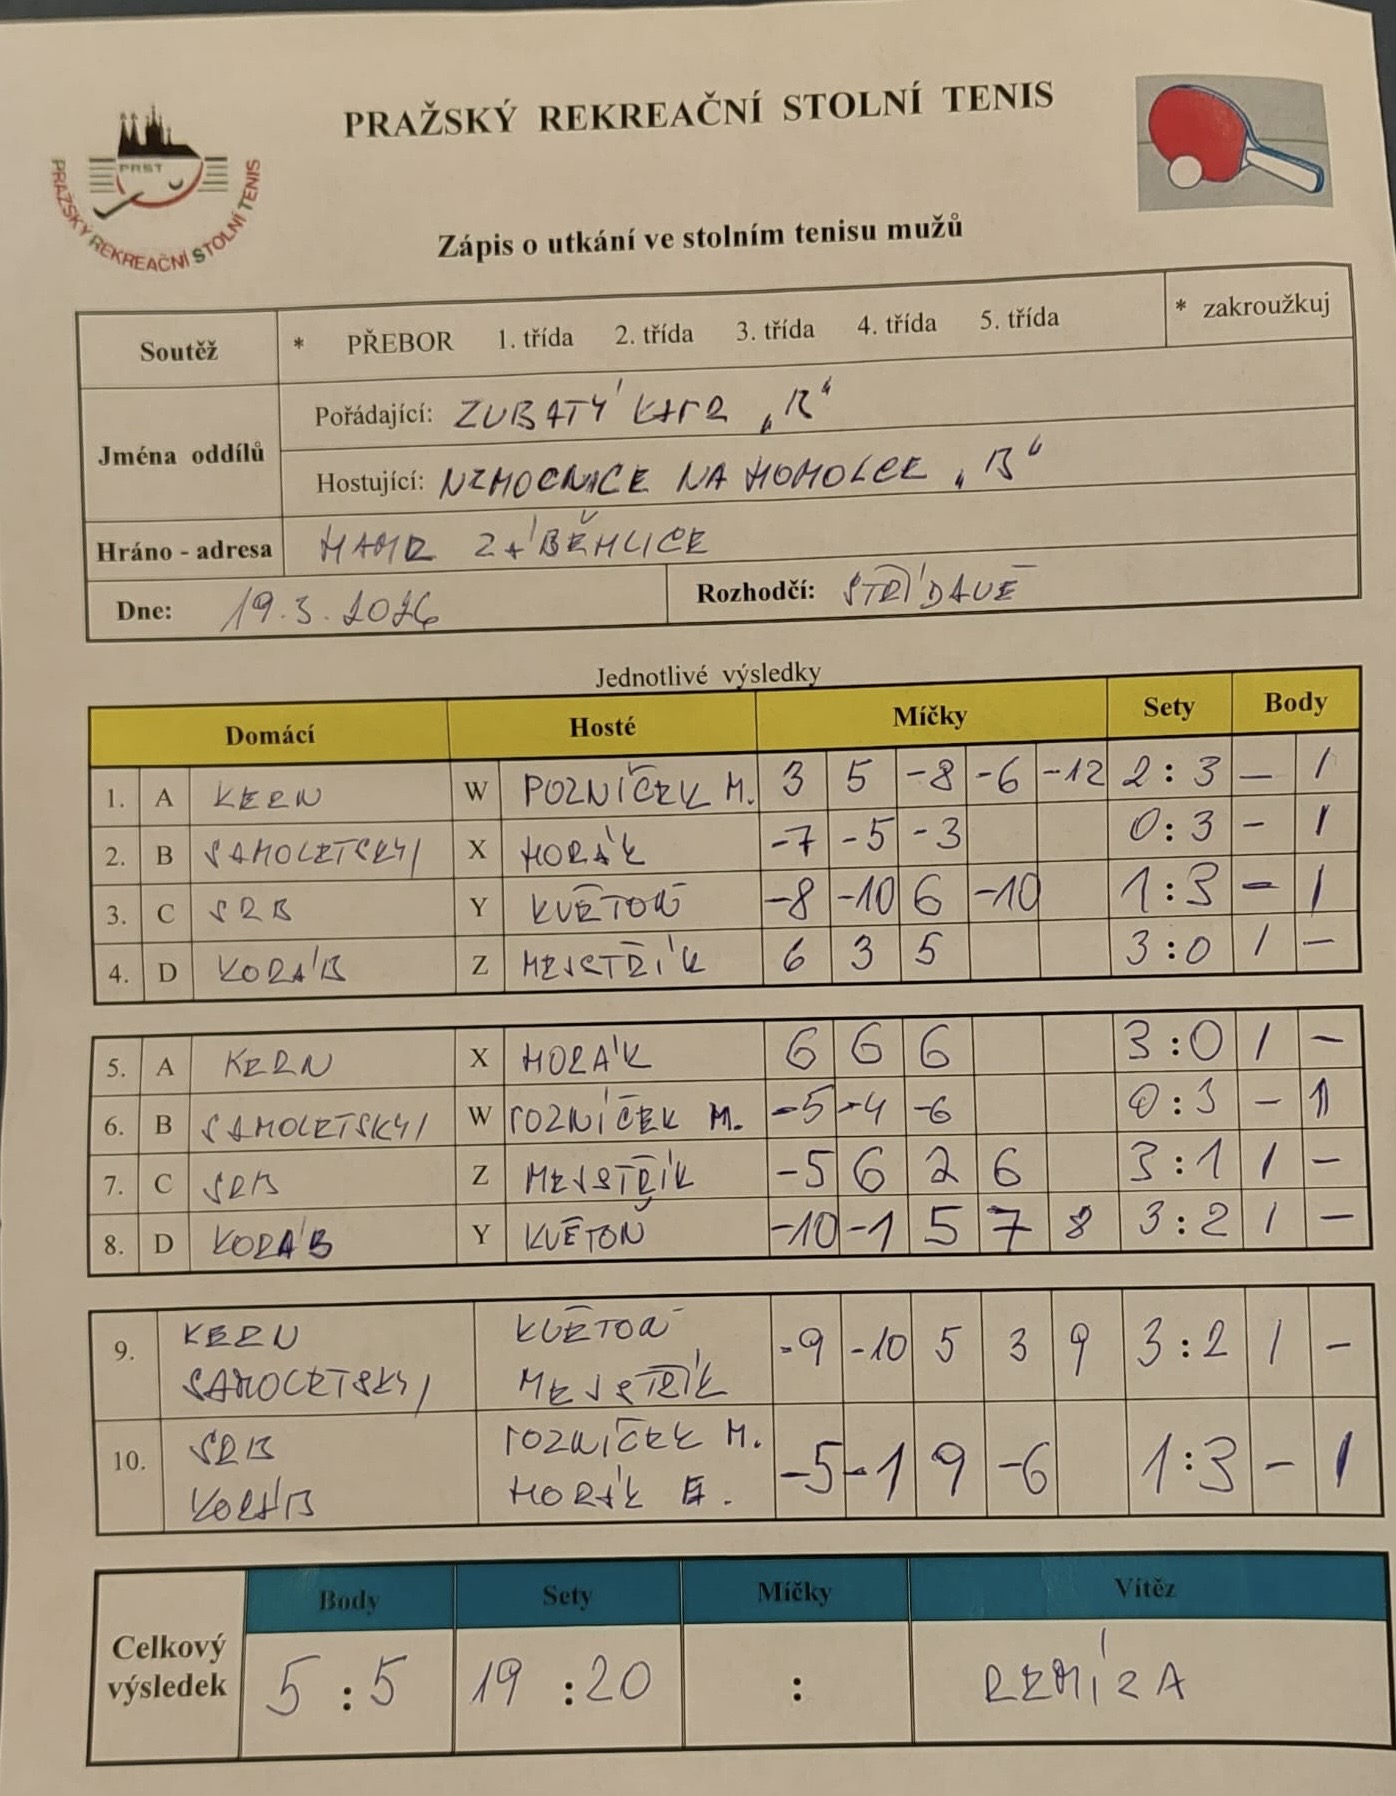 PRAŽSKÝ REKREAČNÍ STOLNÍ TENIS
PRST
PRAŽSKÝ REKREAČNÍ STOLNÍ TENIS
Zápis o utkání ve stolním tenisu mužů
Soutěž * PŘEBOR 1. třída 2. třída 3. třída 4. třída 5. třída * zakroužkuj
Jména oddílů
Pořádající: ZUBATÝ KAPR
Hostující: NEMOCNICE NA HOMOLCE „B“
Hráno - adresa HAMR ZÁBĚHLICE
Dne: 19.3.2026 Rozhodčí: STŘÍDAVĚ
Jednotlivé výsledky
Domácí Hosté Míčky Sety Body
1. A KERN W POZNÍČEK M. 3 5 -8 -6 -12 2 : 3 – 1
2. B SAMOLETSKÝ X HORÁK -7 -5 -3 0 : 3 – 1
3. C SRB Y KVĚTOŇ -8 -10 6 -10 1 : 3 – 1
4. D KORÁB Z MEJSTŘÍK 6 3 5 3 : 0 1 –
5. A KERN X HORÁK 6 6 6 3 : 0 1 –
6. B SAMOLETSKÝ W POZNÍČEK M. -5 -4 -6 0 : 3 – 1
7. C SRB Z MEJSTŘÍK -5 6 2 6 3 : 1 1 –
8. D KORÁB Y KVĚTOŇ -10 -1 5 7 8 3 : 2 1 –
9. KERN KVĚTOŇ -9 -10 5 3 9 3 : 2 1 –
SAMOLETSKÝ MEJSTŘÍK
10. SRB POZNÍČEK M. -5 -1 9 -6 1 : 3 – 1
KORÁB HORÁK
Body Sety Míčky Vítěz
Celkový výsledek 5 : 5 19 : 20 : REMÍZA